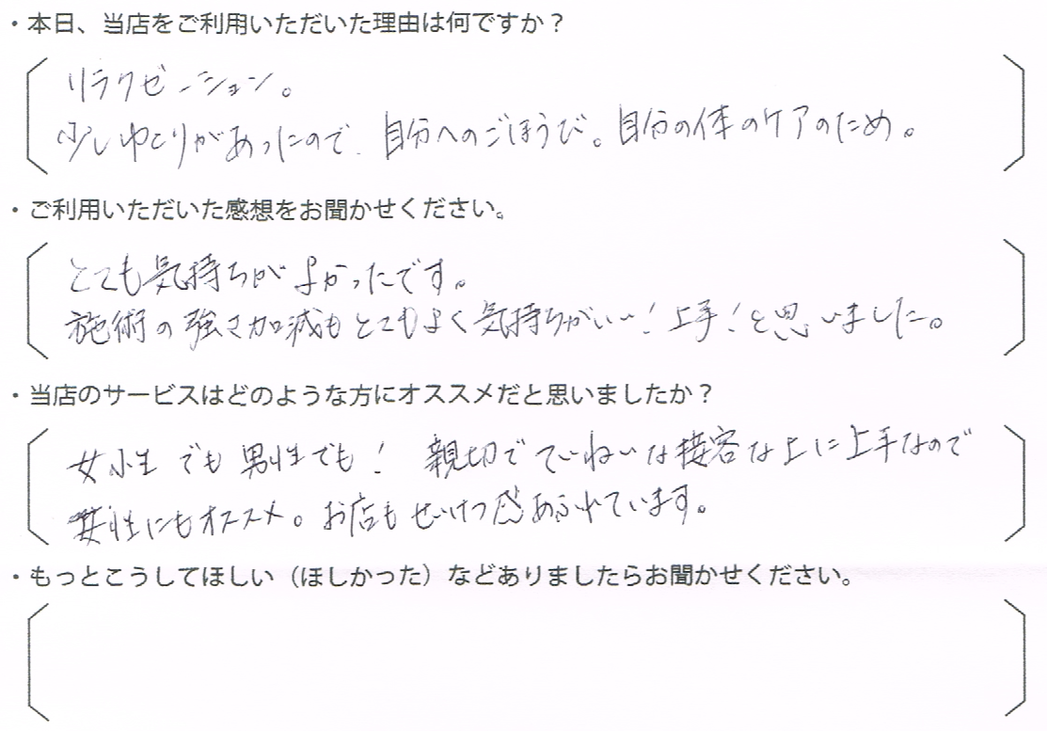 ・本日、当店をご利用いただいた理由は何ですか？
リラクゼーション。
少しゆとりがあったので、自分へのごほうび。自分の体のケアのため。
・ご利用いただいた感想をお聞かせください。
とても気持ちがよかったです。
施術の強さ加減もとてもよく気持ちがいい！上手！と思いました。
・当店のサービスはどのような方にオススメだと思いましたか？
女性でも男性でも！ 親切でていねいな接客な上に上手なので
女性にもオススメ。お店もせいけつ感あふれています。
・もっとこうしてほしい（ほしかった）などありましたらお聞かせください。